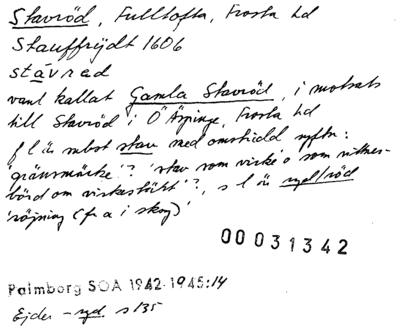 Stavröd, Fulltofta, Frosta hd
Stauffrÿdt 1606
stávrad
vanl kallat Gamla Stavröd, i motsats
till Stavröd i Ö Äspinge, Frosta hd
f l är subst stav med omstridd syftn:
'gränsmärke'? 'stav som virke' o som vittnes-
börd om virkestäkt'?, s l är ryd/röd
'röjning (fr a i skog)'
00031342
Palmborg SOA 1942-1945:14
Ejder -ryd s 135